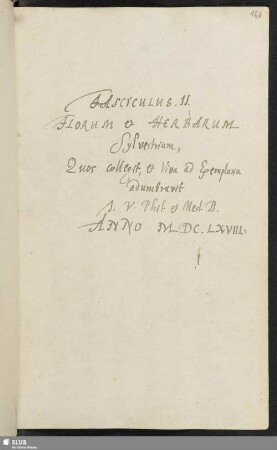 168
FASCICULUS. II.
FLORUM et HERBARUM
Sylvestrium,
Quos collegit, et viva ad Exemplaria
adumbravit
J. V. Phil. et Med. D.
ANNO M.DC.LXVIII.
SLUB